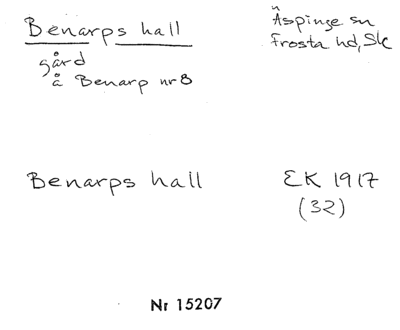 Benarps hall
gård
å Benarp nr 8
N Äspinge sn
Frosta hd, Sk
Benarps hall
EK 1917
(32)
Nr 15207